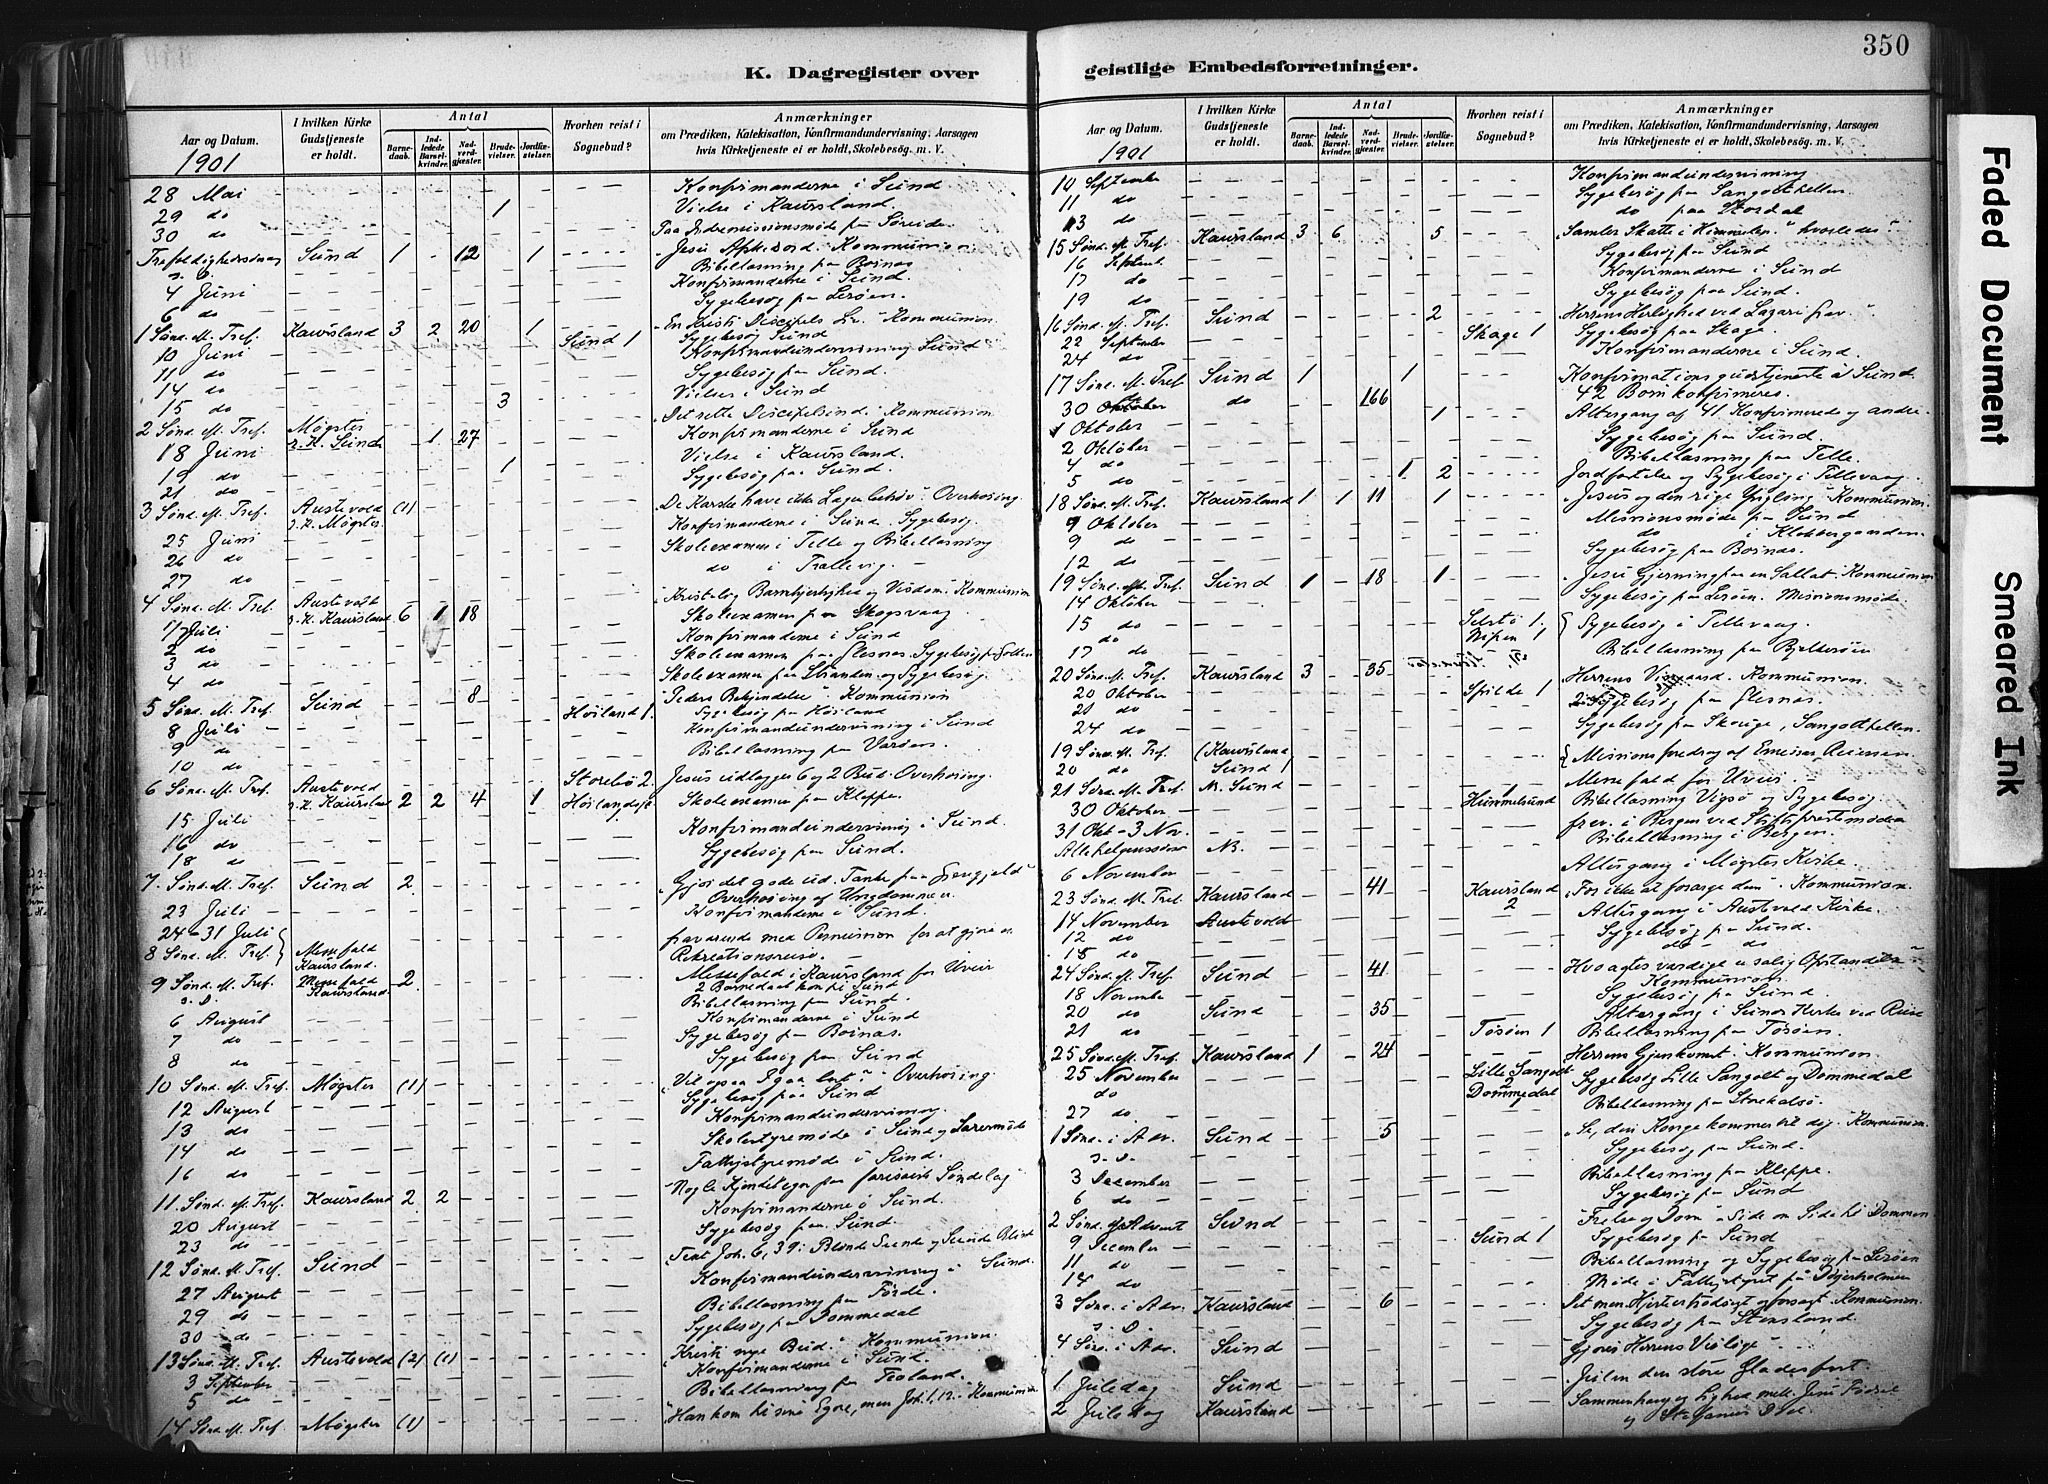 350
K. Dagregister over geistlige Embedsforretninger.
Aar og Datum.
1901
I hvilken Kirke Gudstjeneste er holdt.
Antal
Barnedaab.
Indledede Barselkvinder.
Nadverdgjæster.
Brudevielser.
Jordfæstelser.
Hvorhen reist i Sognebud?
Anmærkninger
om Prædiken, Katekisation, Konfirmandundervisning, Aarsagen
hvis Kirketjeneste ei er holdt, Skolebesøg. m. V.
28 Mai - - - - - - - Konfirmanderne i Sund
29 do - - - - 1 - - Vielse i Kaursland.
30 do - - - - - - - Paa Indremissionsmøde paa Søreide
Trefoldighedssøndag Sund 1 - 12 - 1 - Jesu Afskedsord. Kommunion
s. D. - Bibellæsning paa Bornæs
4 Juni - Konfirmanderne i Sund
6 do - Sygebesøg paa Lerøen.
1 Sønd. e. Tref. Kaursland 3 2 20 - 1 - En Kristi Discipels Kommunion.
10 Juni - Sund 1 Sygebesøg Sund
11 do - Konfirmandundervisning Sund
14 do - Sygebesøg paa Sund.
15 do - 3 - Vielser i Sund
2 Sønd. e. Tref. Møgster - 1 27 - Det rette Discipelsind. Kommunion
s. K. Sund
18 Juni - Konfirmanderne i Sund
19 do - 1 - Vielse i Kaursland.
21 do - Sygebesøg paa Sund.
3 Sønd. e. Tref. Austevold (1) - De Karske have ikke Læge behov. Overhøring
s. K. Møgster
25 Juni - Konfirmanderne i Sund. Sygebesøg.
26 do - Skoleexamen i Telle og Bibellæsning
27 do - do i Trællevig.
4 Sønd. e. Tref. Austevold 6 1 18 - Kristelig Barmhjertighed og Visdom. Kommunion
s. K. Kaursland
1 Juli - Skoleexamen paa Skogsvaag
2 do - Konfirmanderne i Sund
3 do - Skoleexamen paa Glesnæs. Sygebesøg paa Golten
4 do - Skoleexamen paa Stranden og Sygebesøg.
5 Sønd. e. Tref. Sund - 8 - Peders Bekjendelse. Kommunion
8 Juli - Høiland 1. Sygebesøg paa Høiland
9 do - Konfirmandundervisning i Sund
10 do - Bibellæsning paa Varøen.
6 Sønd. e. Tref. Austevold 2 2 4 - 1 Storebø 2. Jesus udlægger 6 og 2 Bud. Overhøring.
s. K. Kaursland Høiland
15 Juli - Skoleexamen paa Kleppe.
16 do - Konfirmandundervisning i Sund.
18 do - Sygebesøg paa Sund.
7. Sønd. e. Tref. Sund 2. - Gjør det gode ud. Tanke paa Gjengjeld
Overhøring af Ungdommen.
23 Juli - Konfirmanderne i Sund.
24-31 Juli - fraværende med Permission for at gjøre en
8 Sønd. e. Tref. Messefald Kaursland. Rekreationsreise.
9 Sønd. e. Tref. Messefald Kaursland 2 - Messefald i Kaursland for Uveir
s. D. 2 Barnedaab kom til Sund
Bibellæsning paa Sund.
6 August - Konfirmanderne i Sund
7 do - Sygebesøg paa Bornæs.
8 do - Sygebesøg paa Sund
10 Sønd. e. Tref. Møgster (1) - Vil ogsaa I gaa bort? Overhøring
12 August - Sygebesøg paa Sund
13 do - Konfirmandundervisning.
14 do - Skolestyremøde i Sund og Lærermøde
16 do - Fattigstyremøde i Sund.
11. Sønd. e. Tref. Kaursland 2 2 - Nogle Kjendetegn paa farisæisk Sindelag
20 August - Konfirmanderne i Sund.
23 do - Sygebesøg paa Sund.
12 Sønd. e. Tref. Sund - Text Joh. 6, 39: Blinde Seende og Seende Blind
27 August - Konfirmandundervisning i Sund.
29 do - Bibellæsning paa Førde.
30 do - Sygebesøg paa Dommedal
13 Sønd. e. Tref. Austevold (2) (1) - Kristi nye Bud. Kommunion.
3 September - Konfirmanderne i Sund.
5 do - Bibellæsning paa Toland.
14 Sønd. e. Tref. Møgster (1) - Han kom til sine Egne, men Joh. 1, 12. Kommunion
Aar og Datum.
1901
I hvilken Kirke Gudstjeneste er holdt.
Antal
Barnedaab.
Indledede Barselkvinder.
Nadverdgjæster.
Brudevielser.
Jordfæstelser.
Hvorhen reist i Sognebud?
Anmærkninger
om Prædiken, Katekisation, Konfirmandundervisning, Aarsagen
hvis Kirketjeneste ei er holdt, Skolebesøg. m. V.
10 September - Konfirmandundervisning
11 do - Sygebesøg paa Sangolthellen
13 do - do paa Stordal
15 Sønd. e. Tref. Kaursland 3 6 - 5 - Samler Skatte i Himmelen. hvorledes
16 Septemb. - Sygebesøg paa Sund
17 do - Konfirmanderne i Sund
19 do - Sygebesøg paa Sund.
16 Sønd. e. Tref. Sund - 2 - Herrens Herlighed ved Lazari Grav.
22 September - Skage 1 Sygebesøg paa Skage.
24 do - Konfirmanderne i Sund.
17 Sønd. e. Tref. Sund 1 - 1 - Konfirmationsgudstjeneste i Sund.
42 Børn konfirmeres.
30 Oktober do - 166 - Altergang af 41 Konfirmerede og andre
1 Oktober - 1 - Sygebesøg paa Sund.
2 Oktober - Bibellæsning paa Telle.
4 do
5 do - 1 2 - Jordfæstelse og Sygebesøg i Tellevaag.
18 Sønd. e. Tref. Kaursland 1 1 11 - 1 - Jesus og den rige Yngling. Kommunion.
9 Oktober - Missionsmøde paa Sund
9 do - do i Klokkergaarden.
12 do - Sygebesøg paa Bornæs.
19 Sønd. e. Tref. Sund 1 - 18 - 1 - Jesu Gjerning paa en Sabbat. Kommunion
14 Oktober - Sygebesøg paa Lerøen. Missionsmøde.
15 do - Selstø 1. Sygebesøg i Tellevaag.
do - Nipen 1
17 do - Bibellæsning paa Bjelkerøen
20 Sønd. e. Tref. Kaursland 3 - 35 - Herrens Viingaard. Kommunion.
20 Oktober - Spilde 1 Sygebesøg paa Glesnæs.
21 do
24 do - Sygebesøg paa Skauge, Sangolthellen.
19 Sønd. e. Tref. (Kaursland Missionsforedrag af Emissær Reiersen
20 do Sund)
21 Sønd. e. Tref. M. Sund - Messefald for Uveir.
30 Oktober - Hummelsund 1 Bibellæsning Vigsø og Sygebesøg
31 Okt - 3 Nov. - frav. i Bergen ved Stiftsprestemøde
Allehelgenssønd M. - Bibellæsning i Bergen.
6 November - Altergang i Møgster Kirke.
23 Sønd. e. Tref. Kaursland - 41 - Kaursland 2 For ikke at forarge dem. Kommunion.
14 November Austevold - Altergang i Austevold Kirke.
12 do - Sygebesøg paa Sund.
15 do - do - do
24 Sønd. e. Tref. Sund - 41 - Hvo agtes værdige en salig Opstandelse
Kommunion
18 November - Sygebesøg paa Sund.
20 do Sund - 35 - Altergang i Sunds Kirke ved Riise
21 do - Tøsøen 1 Bibellæsning paa Tøsøen.
25 Sønd. e. Tref. Kaursland 1 - 24 - Herrens Gjenkomst. Kommunion.
25 November - Lille Sangolt Sygebesøg Lille Sangolt og Dommedal
do - Dommedal 2 Bibellæsning paa Storekalsø.
27 do
1 Sønd. i Adv. Sund - 5 - Se, din Konge kommer til dig. Kommunion.
s. D. - Sygebesøg paa Sund.
3 December - Bibellæsning paa Kleppe.
6 do - Sygebesøg paa Sund
2 Sønd. i Advent Sund - Frelse og Dom Side om Side til Dommen
9 December - Sund 1 Sygebesøg paa Sund
11 do - Bibellæsning og Sygebesøg paa Lerøen
14 do - Møde i Fattigstyret
3 Sønd. i Adv. Kaursland - 6 - Kommunion.
s. D. - Sygebesøg paa Stensland.
4 Sønd. i Adv. Sund - Gjører Herrens Vei lige
1 Juledag Sund - Julen den store Gladesfest.
2 Juledag Kaursland - Sammenhæng og Lighed mell. Jesu Fødsel
og Stefanus Død.
Faded Document
Smeared Ink